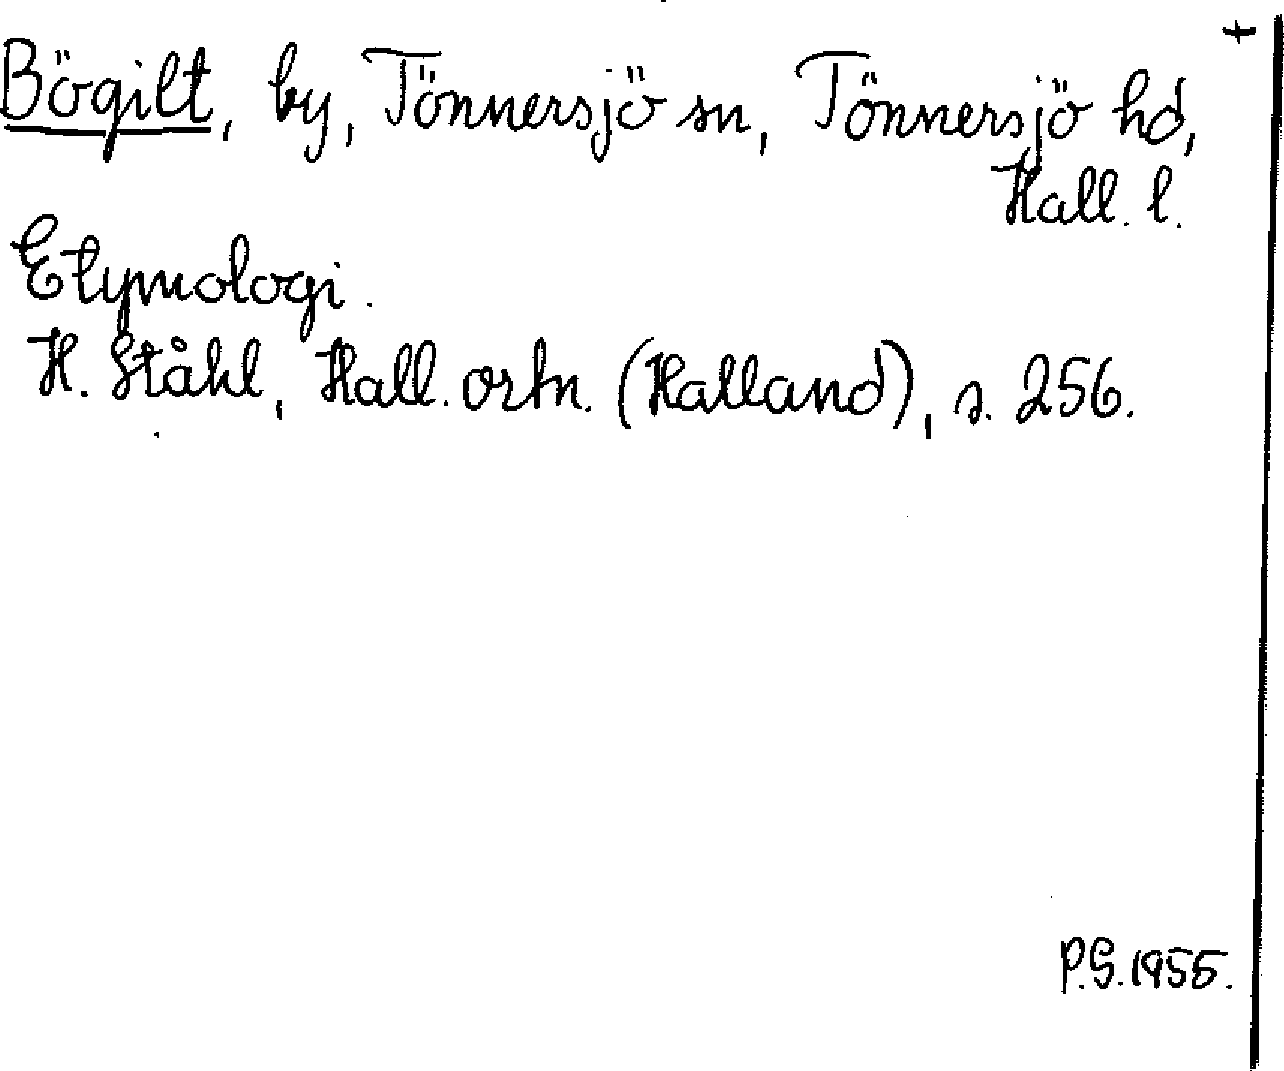 Bögilt, by, Tönnersjö sn, Tönnersjö hd,
Hall. l.
Etymologi.
H. Ståhl, Hall. ortn. (Halland), s. 256.
P.G. 1955.